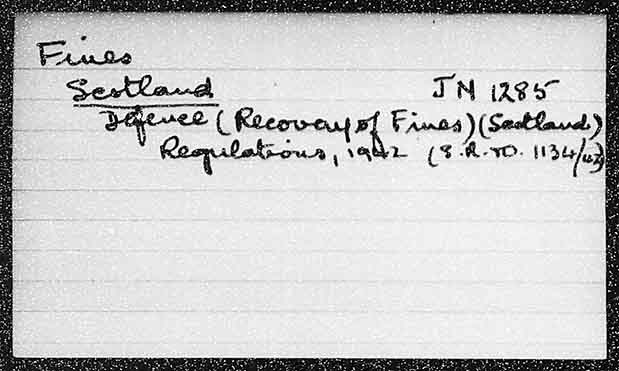 Fines
Scotland JN 1285
Defence (Recovery of Fines) (Scotland)
Regulations, 1942 (S.R.&O. 1134/42)